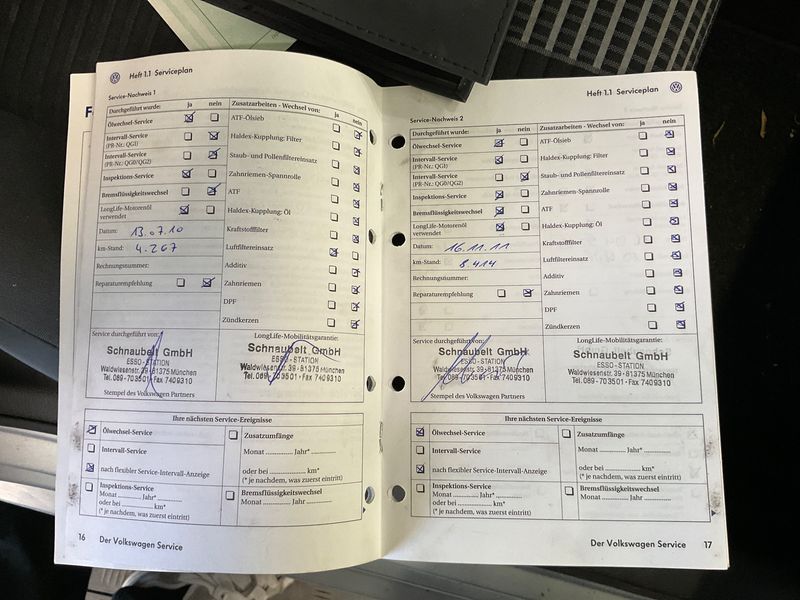 Heft 1.1 Serviceplan
Service-Nachweis 1
Durchgeführt wurde: ja nein
Ölwechsel-Service
Intervall-Service
(PR-Nr.: QGI)
Intervall-Service
(PR-Nr.: QG0/QG2)
Inspektions-Service
Bremsflüssigkeitswechsel
LongLife-Motorenöl
verwendet
Datum: 13.07.10
km-Stand: 4.267
Rechnungsnummer:
Reparaturempfehlung
Zusatzarbeiten - Wechsel von: ja nein
ATF-Ölsieb
Haldex-Kupplung: Filter
Staub- und Pollenfiltereinsatz
Zahnriemen-Spannrolle
ATF
Haldex-Kupplung: Öl
Kraftstofffilter
Luftfiltereinsatz
Additiv
Zahnriemen
DPF
Zündkerzen
Service durchgeführt von:
Schnaubelt GmbH
ESSO - STATION
Waldwiesenstr. 39 · 81375 München
Tel. 089 - 703501 · Fax 7409310
Stempel des Volkswagen Partners
LongLife-Mobilitätsgarantie:
Schnaubelt GmbH
ESSO - STATION
Waldwiesenstr. 39 · 81375 München
Tel. 089 - 703501 · Fax 7409310
Ihre nächsten Service-Ereignisse
Ölwechsel-Service
Intervall-Service
nach flexibler Service-Intervall-Anzeige
Inspektions-Service
Monat .............. Jahr* ..............
oder bei .............. km*
(* je nachdem, was zuerst eintritt)
Zusatzumfänge
Monat .............. Jahr* ..............
oder bei .............. km*
(* je nachdem, was zuerst eintritt)
Bremsflüssigkeitswechsel
Monat .............. Jahr ..............
16 Der Volkswagen Service
Heft 1.1 Serviceplan
Service-Nachweis 2
Durchgeführt wurde: ja nein
Ölwechsel-Service
Intervall-Service
(PR-Nr.: QGI)
Intervall-Service
(PR-Nr.: QG0/QG2)
Inspektions-Service
Bremsflüssigkeitswechsel
LongLife-Motorenöl
verwendet
Datum: 16.11.11
km-Stand: 8.414
Rechnungsnummer:
Reparaturempfehlung
Zusatzarbeiten - Wechsel von: ja nein
ATF-Ölsieb
Haldex-Kupplung: Filter
Staub- und Pollenfiltereinsatz
Zahnriemen-Spannrolle
ATF
Haldex-Kupplung: Öl
Kraftstofffilter
Luftfiltereinsatz
Additiv
Zahnriemen
DPF
Zündkerzen
Service durchgeführt von:
Schnaubelt GmbH
ESSO - STATION
Waldwiesenstr. 39 · 81375 München
Tel. 089 - 703501 · Fax 7409310
Stempel des Volkswagen Partners
LongLife-Mobilitätsgarantie:
Schnaubelt GmbH
ESSO - STATION
Waldwiesenstr. 39 · 81375 München
Tel. 089 - 703501 · Fax 7409310
Ihre nächsten Service-Ereignisse
Ölwechsel-Service
Intervall-Service
nach flexibler Service-Intervall-Anzeige
Inspektions-Service
Monat .............. Jahr* ..............
oder bei .............. km*
(* je nachdem, was zuerst eintritt)
Zusatzumfänge
Monat .............. Jahr* ..............
oder bei .............. km*
(* je nachdem, was zuerst eintritt)
Bremsflüssigkeitswechsel
Monat .............. Jahr ..............
Der Volkswagen Service 17